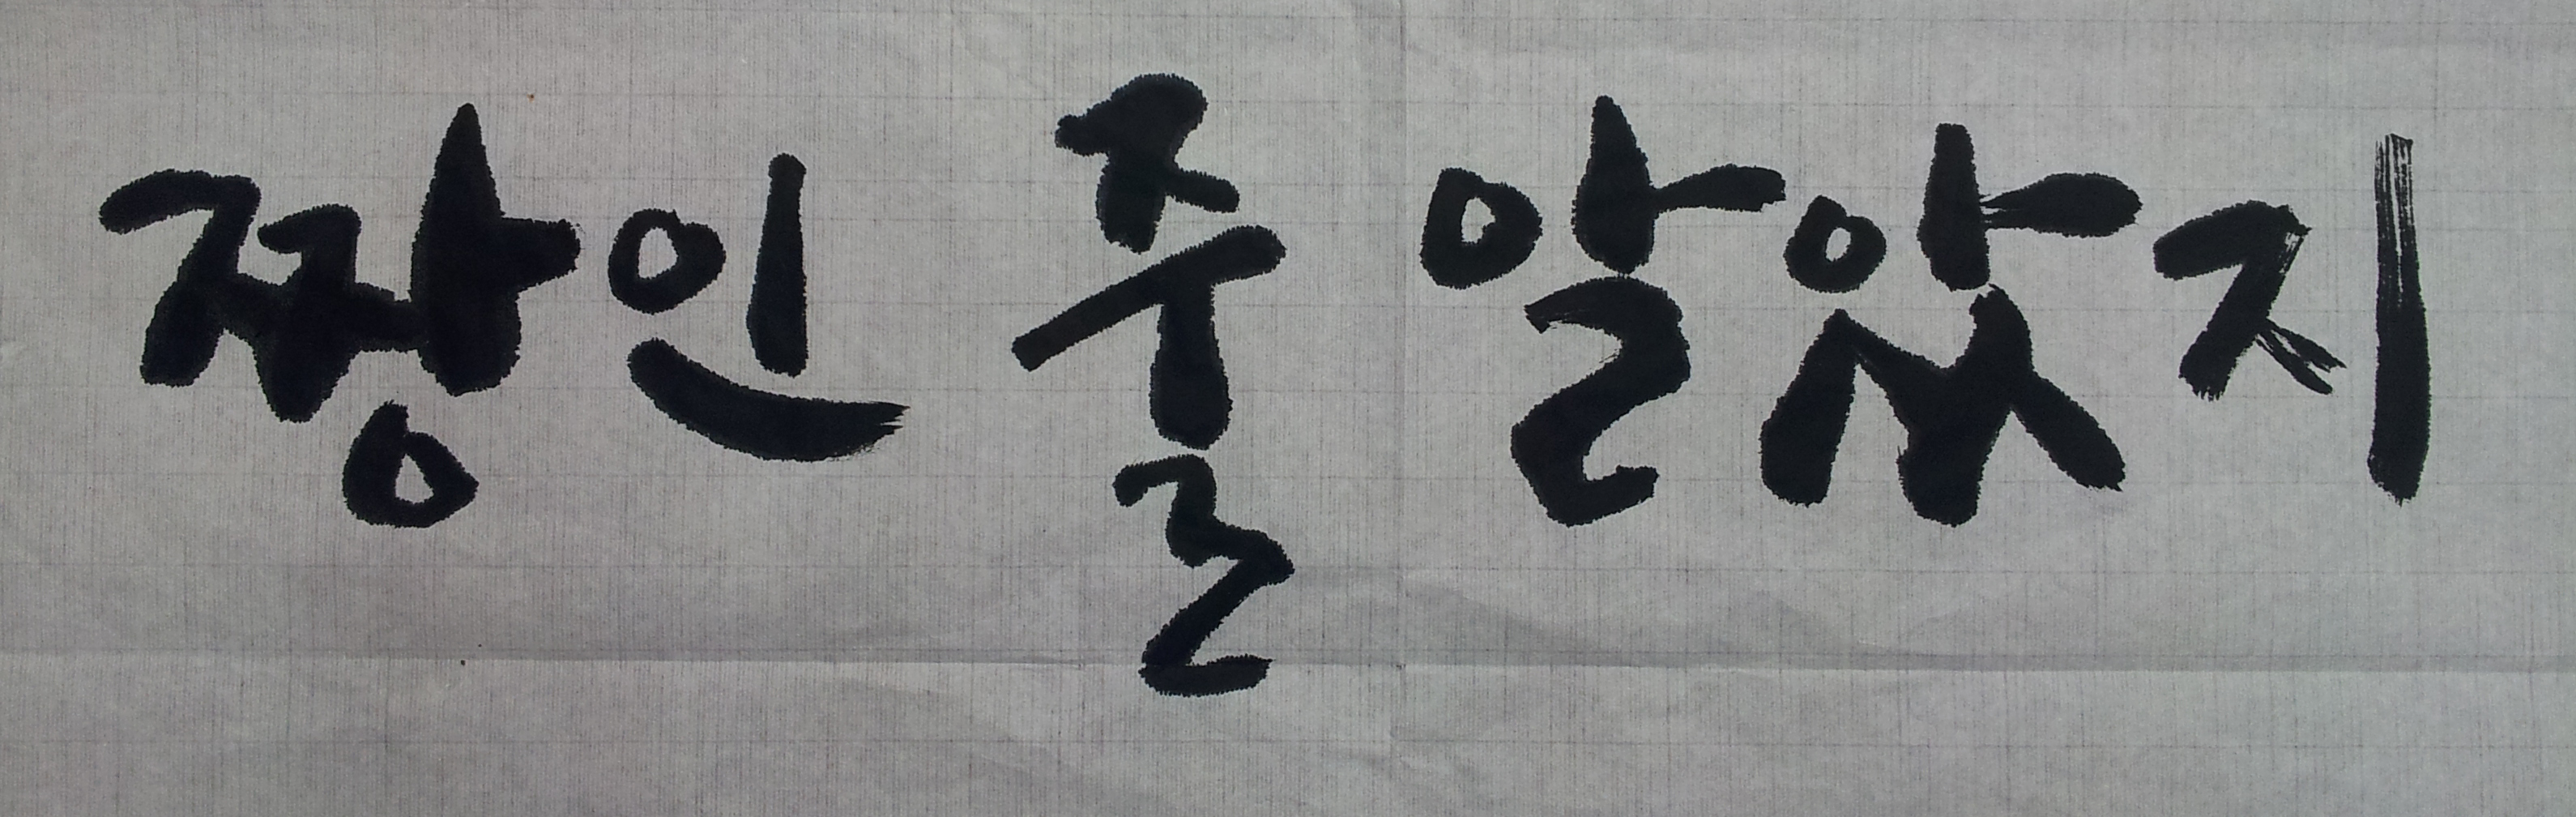 짱인 줄 알았지